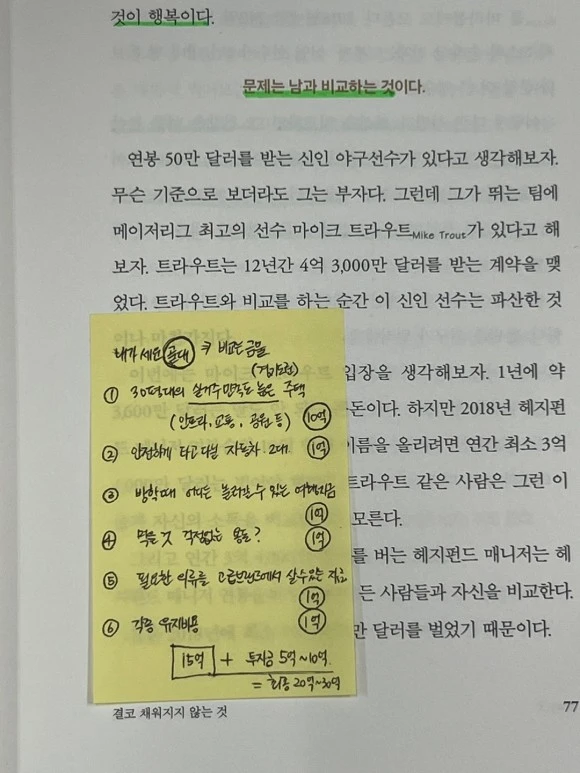 것이 행복이다.
문제는 남과 비교하는 것이다.
연봉 50만 달러를 받는 신인 야구선수가 있다고 생각해보자.
무슨 기준으로 보더라도 그는 부자다. 그런데 그가 뛰는 팀에
메이저리그 최고의 선수 마이크 트라우트Mike Trout가 있다고 해
보자. 트라우트는 12년간 4억 3,000만 달러를 받는 계약을 맺
었다. 트라우트와 비교를 하는 순간 이 신인 선수는 파산한 것
입장을 생각해보자. 1년에 약
돈이다. 하지만 2018년 헤지펀
이름을 올리려면 연간 최소 3억
트라우트 같은 사람은 그런 이
모른다.
를 버는 헤지펀드 매니저는 헤
든 사람들과 자신을 비교한다.
만 달러를 벌었기 때문이다.
내가 세운 골대 비교는 금물
① 30평대의 실거주만족도 높은 주택
(인프라, 교통, 공원 등) 10억
② 안전하게 타고 다닐 자동차 2대 1억
③ 방학때 어디든 놀러갈 수 있는 여행자금
1억
④ 먹을 것 걱정없는 용돈? 1억
⑤ 필요한 의류를 고급브랜드에서 살 수 있는 자금
1억
⑥ 각종 유지비용 1억
15억 + 투자금 5억~10억
= 최종 20억~30억
결코 채워지지 않는 것
77